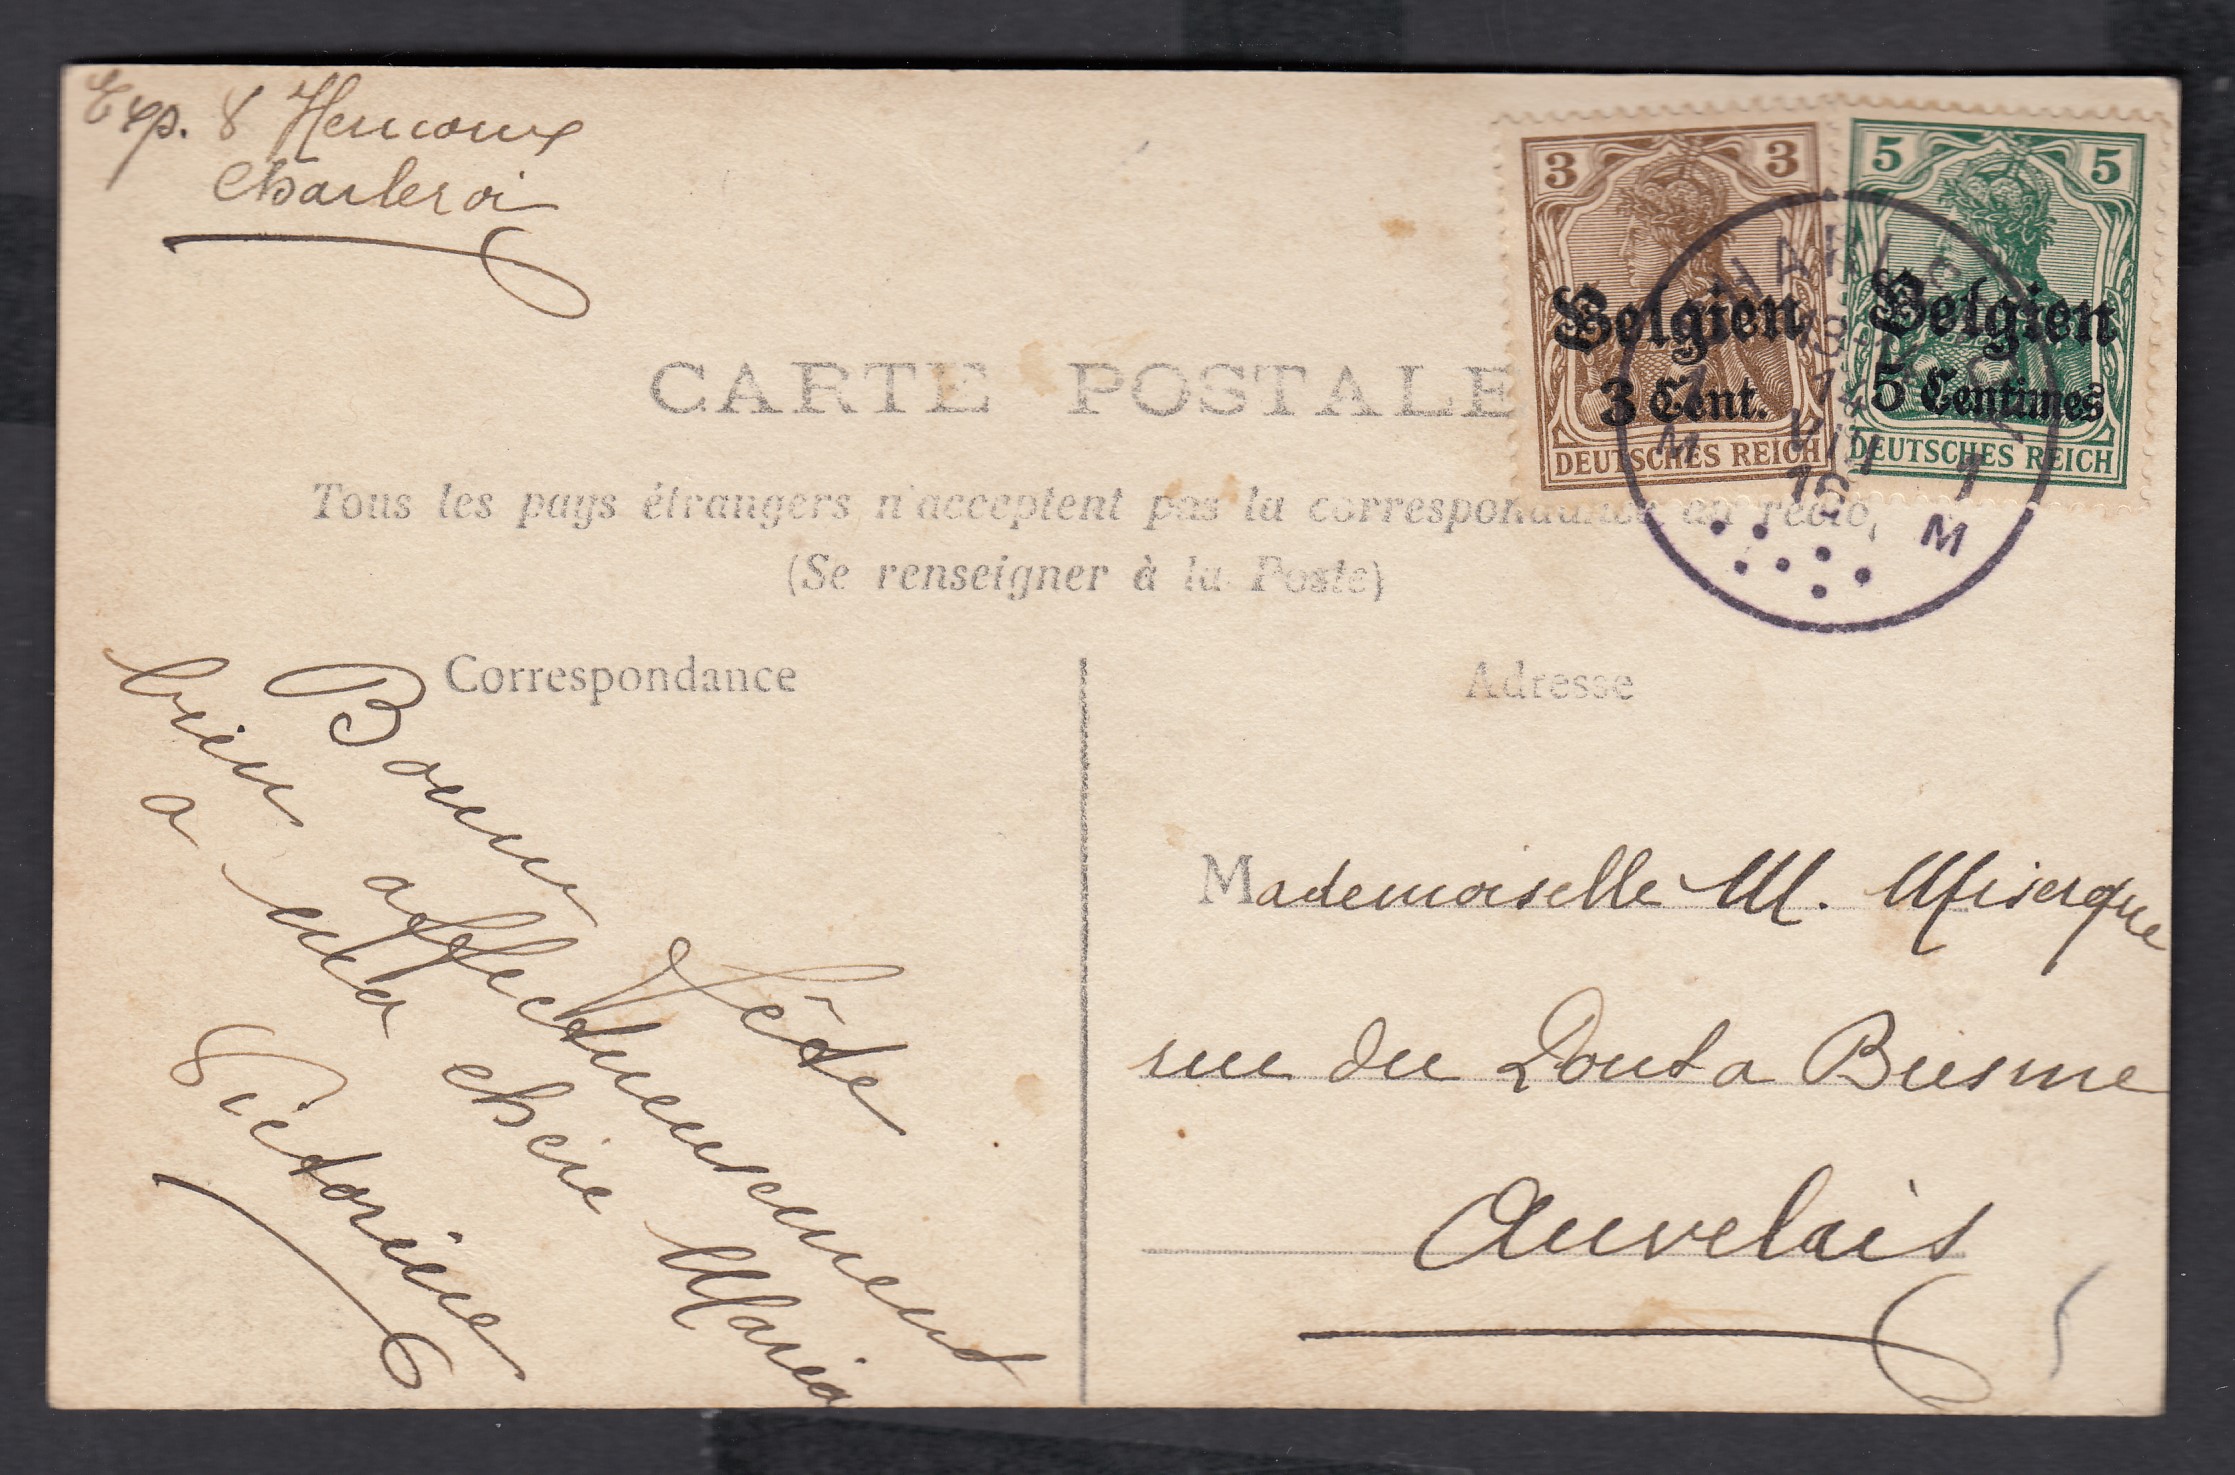 Exp. 8 Hencoux
Charleroi
3 3
Belgien
3 Cent.
DEUTSCHES REICH
5 5
Belgien
5 Centimes
DEUTSCHES REICH
14
VIII
M 1 M
CARTE POSTALE
Tous les pays étrangers n'acceptent pas la correspondance au recto,
(Se renseigner à la Poste)
Correspondance
Adresse
Bonne Fête
bien affectueusement
a ma chère Maria
Victorine
Mademoiselle M. Miserque
rue du Pont a Biesme
Auvelais
5